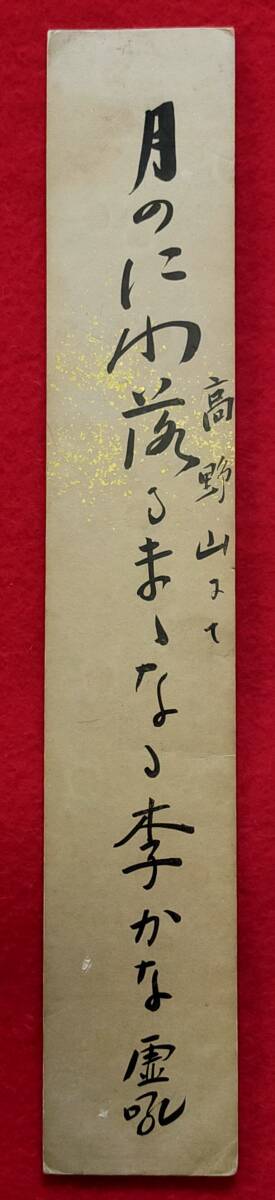 高野山にて
月のにわ落るまゝなる李かな 虚吼